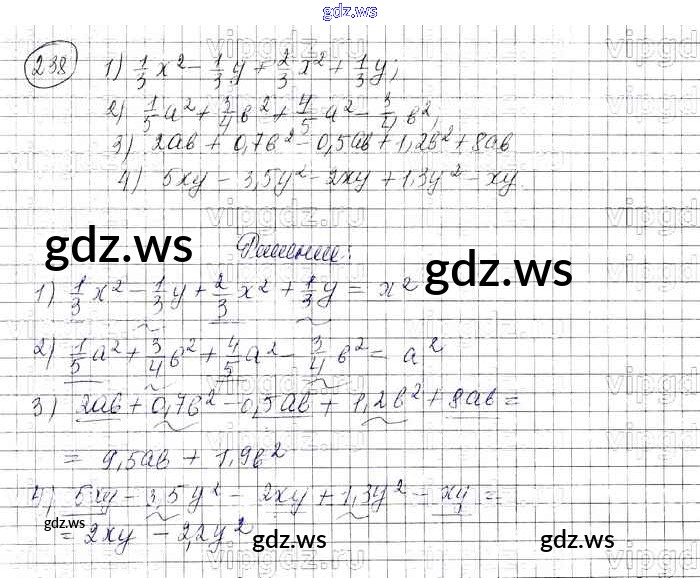 gdz.ws
238 1) 1/3 x² - 1/3 y + 2/3 x² + 1/3 y;
2) 1/5 a² + 3/4 b² + 4/5 a² - 3/4 b²,
3) 2ab + 0,7b² - 0,5ab + 1,2b² + 8ab
4) 5xy - 3,5y² - 2xy + 1,3y² - xy.
Решение:
gdz.ws
gdz.ws
1) 1/3 x² - 1/3 y + 2/3 x² + 1/3 y = x²
2) 1/5 a² + 3/4 b² + 4/5 a² - 3/4 b² = a²
3) 2ab + 0,7b² - 0,5ab + 1,2b² + 8ab =
= 9,5ab + 1,9b²
4) 5xy - 3,5y² - 2xy + 1,3y² - xy =
= 2xy - 2,2y²
gdz.ws
gdz.ws
gdz.ws